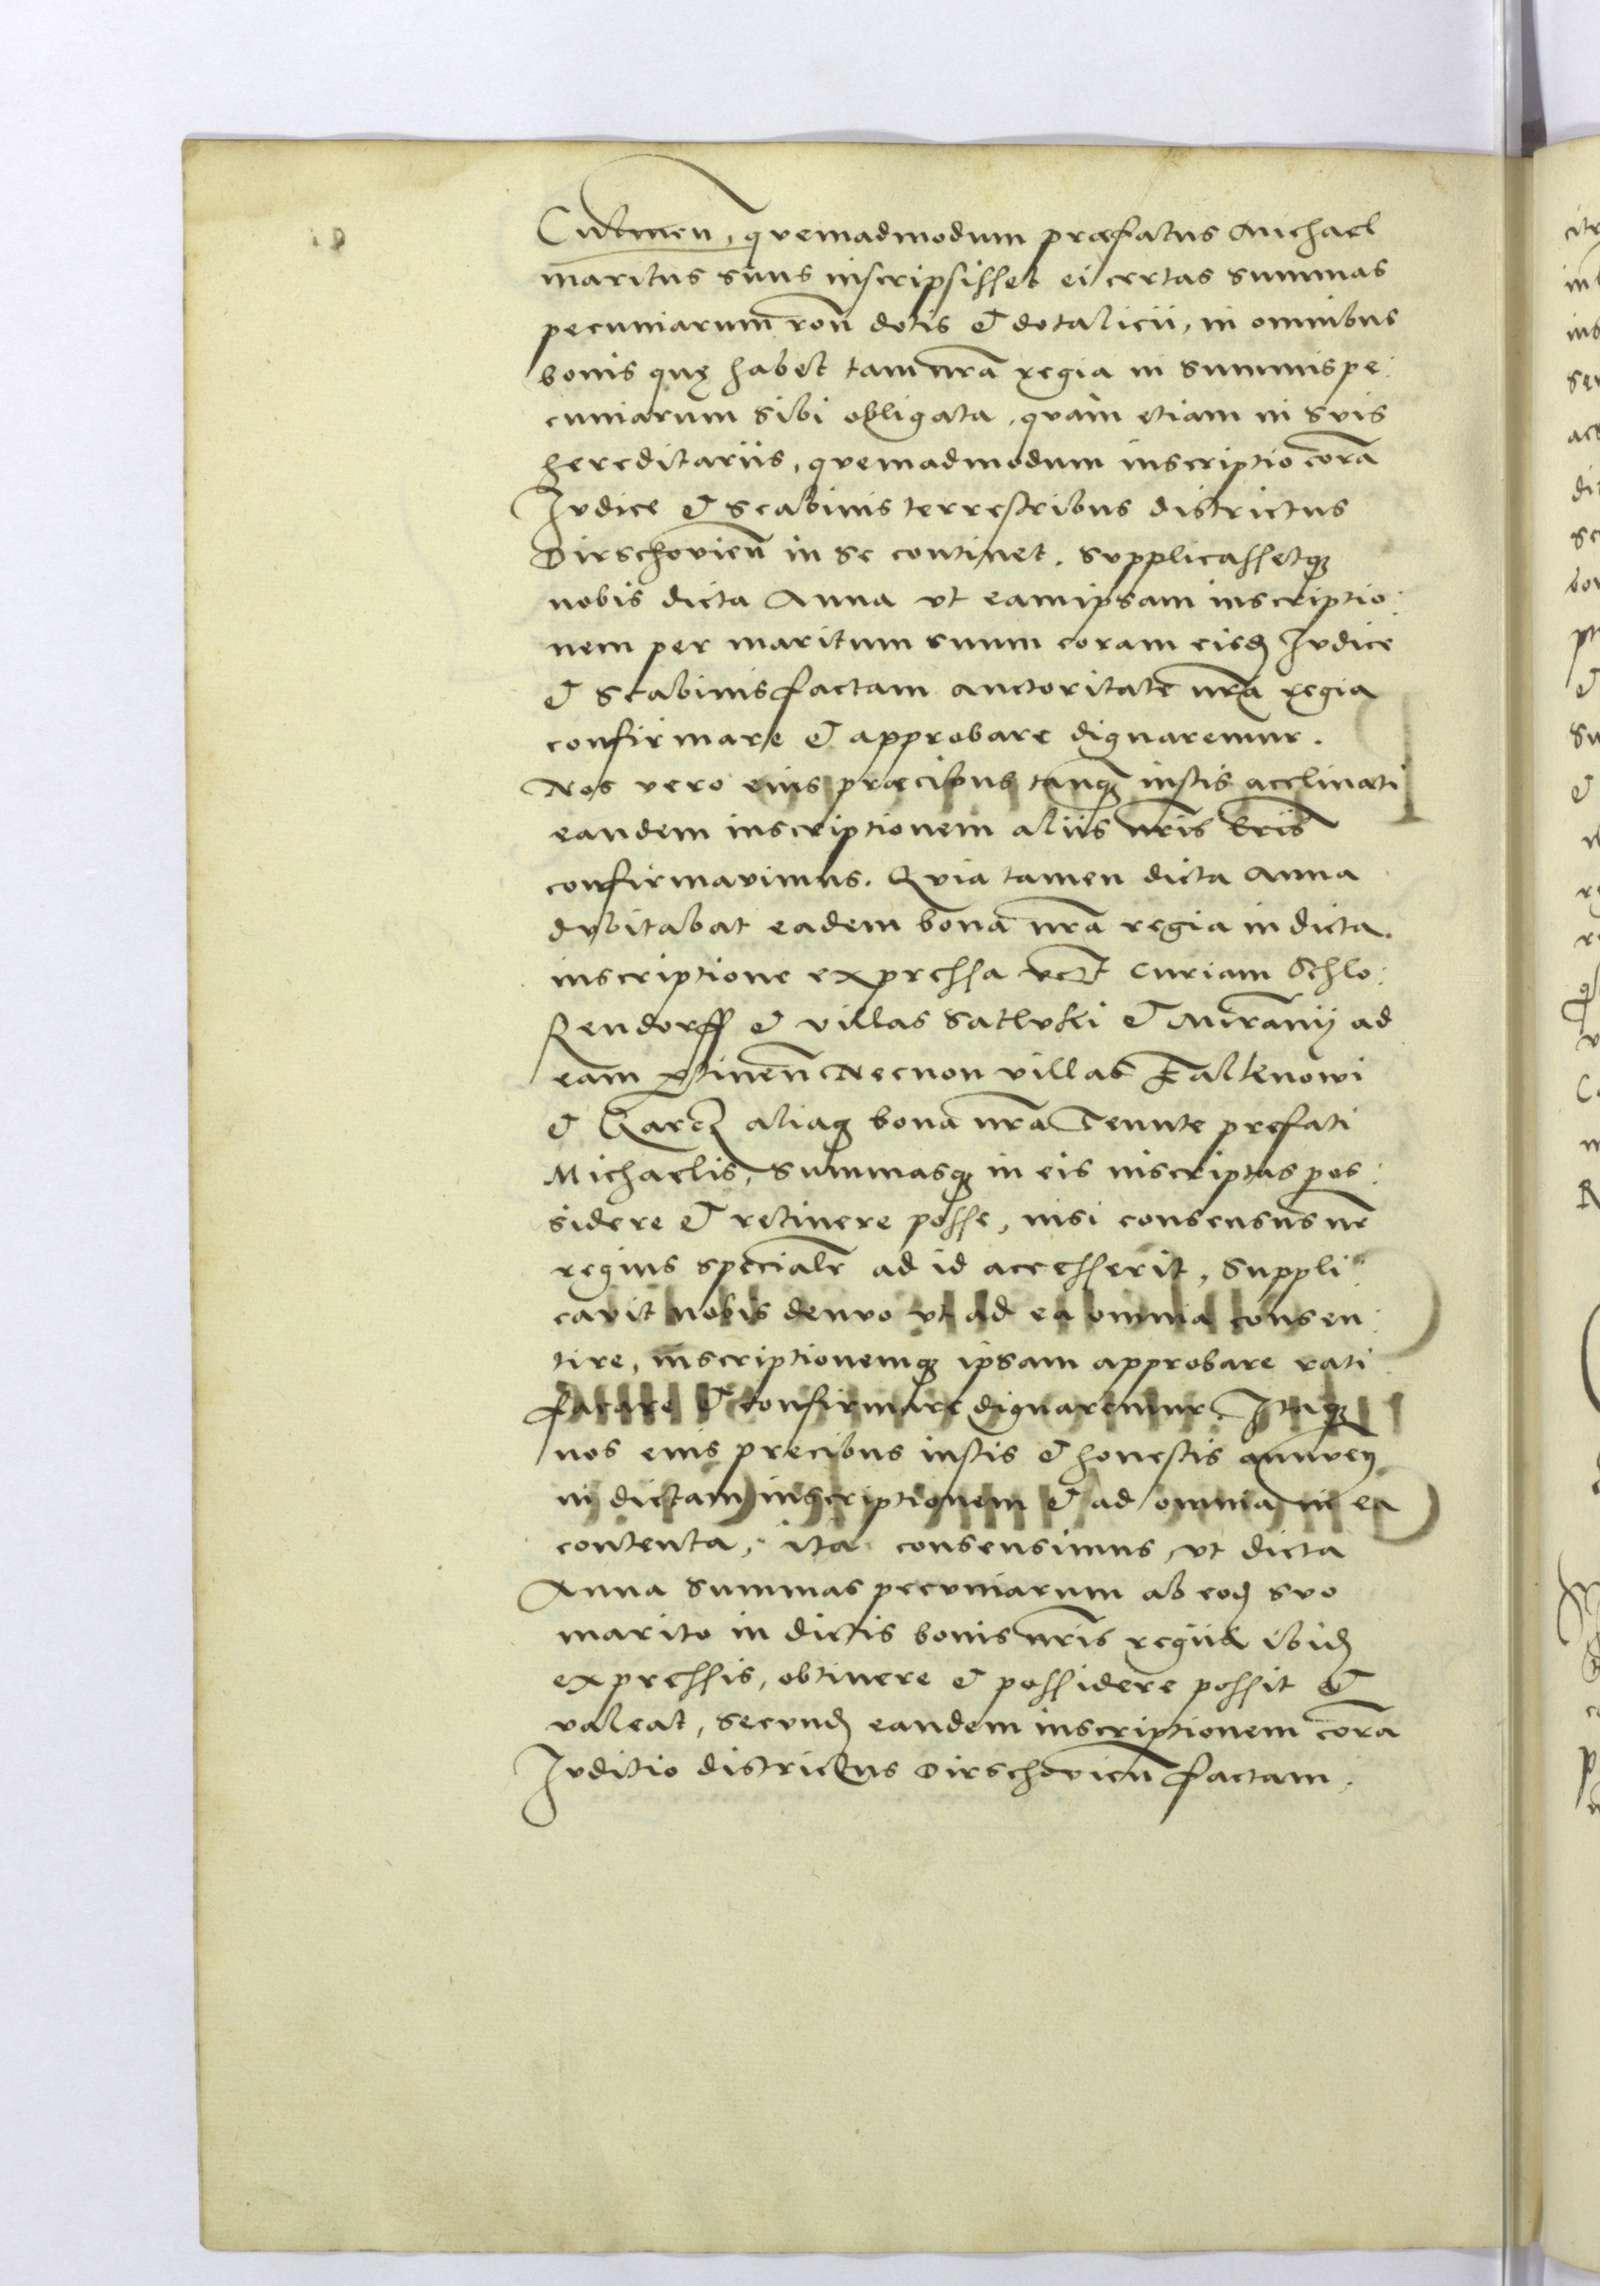 Culmen, quemadmodum præfatus Michael
maritus suus inscripsisset ei certas summas
pecuniarum ron dotis & dotalicii, in omnibus
bonis quę habet tam nra regia in summis pe:
cuniarum sibi obligata, quam etiam in suis
hereditariis, quemadmodum inscriptio cora
Iudice & Scabinis terrestribus districtus
Dirschovien in se continet. Supplicassetq;
nobis dicta Anna ut eam ipsam inscriptio:
nem per maritum suum coram eisd Iudice
& Scabinis factam auctoritate nra regia
confirmare & approbare dignaremur.
Nos vero eius præcibus tanq; iustis acclinati
eandem inscriptionem aliis nris lris
confirmavimus. Quia tamen dicta Anna
dubitabat eadem bona nra regia in dicta
inscriptione expressa vct Curiam Schlo:
kendorff & villas Satluki & Miranij ad
eam ptinen Necnon villas Falkenowi
& aliaq; bona nra Tenute prefati
Michaelis, Summasq; in eis inscriptas pos:
sidere & retinere posse, nisi consensus nr
regius specialr ad id accesserit, Suppli:
cavit nobis denuo ut ad ea omnia consen:
tire, inscriptionemq; ipsam approbare rati
ficare & confirmare dignaremur. Itaq;
nos eius precibus iustis & honestis annuen
in dictam inscriptionem & ad omnia in ea
contenta, ita consensimus, ut dicta
Anna Summas pecuniarum ab eod suo
marito in dictis bonis nris regiis ibid
expressis, obtinere & possidere possit &
valeat, secund eandem inscriptionem cora
Iuditio districtus Dirschovien factam.